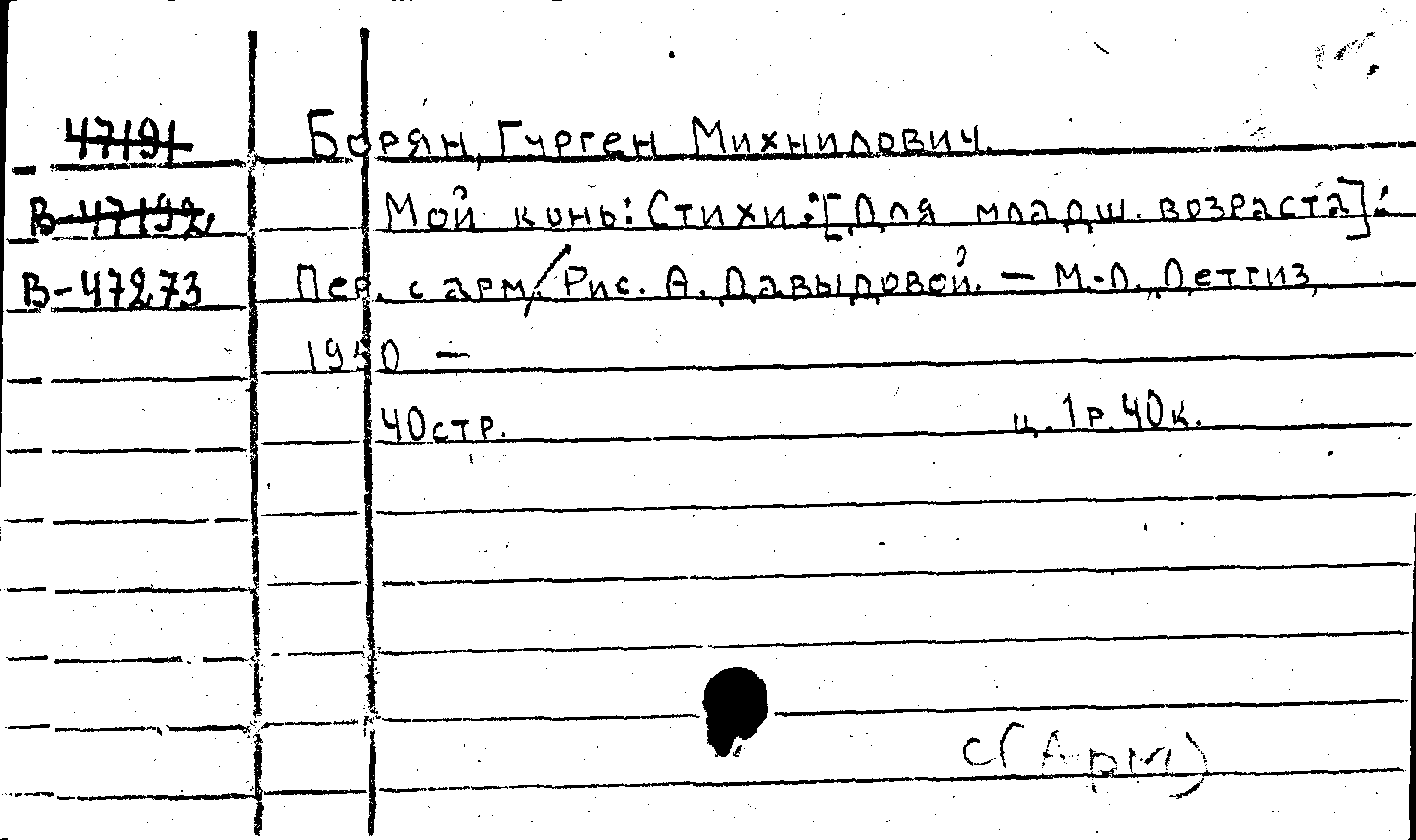 47191 Борян, Гурген Михнилович.
В-47192, Мой конь: Стихи: [Для младш. возраста]:
В-47273 Пер. с арм./Рис. А. Давыдовой. — М.-Л., Детгиз,
1950 —
40 стр. ц. 1 р. 40 к.
С(Арм)